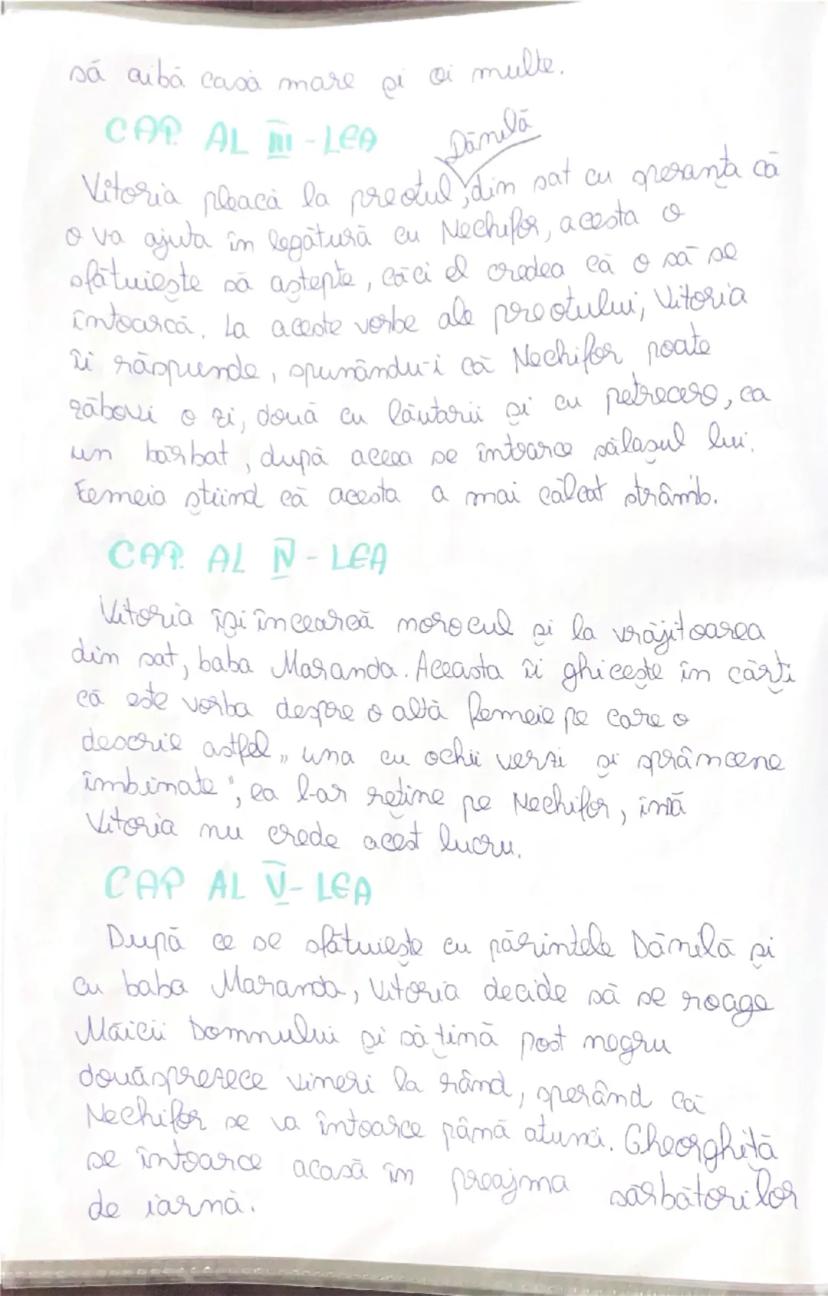 să aibă casă mare și oi multe.
CAP. AL III-LEA
Dănilă
Vitoria pleacă la preotul, din sat cu speranța că
o va ajuta în legătură cu Nechifor, acesta o
sfătuiește să aștepte, căci el credea că o să se
întoarcă. La aceste vorbe ale preotului, Vitoria
îi răspunde, spunându-i că Nechifor poate
zăbovi o zi, două cu lăutarii și cu petrecere, ca
un bărbat, după aceea se întoarce sălașul lui.
Femeia știind că acesta a mai călcat strâmb.
CAP. AL IV-LEA
Vitoria își încearcă norocul și la vrăjitoarea
din sat, baba Maranda. Aceasta îi ghicește în cărți
că este vorba despre o altă femeie pe care o
descrie astfel „una cu ochii verzi și sprâncene
îmbinate", ea l-ar reține pe Nechifor, însă
Vitoria nu crede acest lucru.
CAP AL V-LEA
După ce se sfătuiește cu părintele Dănilă și
cu baba Maranda, Vitoria decide să se roage
Maicii Domnului și să țină post negru
douăsprezece vineri la rând, sperând că
Nechifor se va întoarce până atunci. Gheorghiță
se întoarce acasă în preajma sărbătorilor
de iarnă.